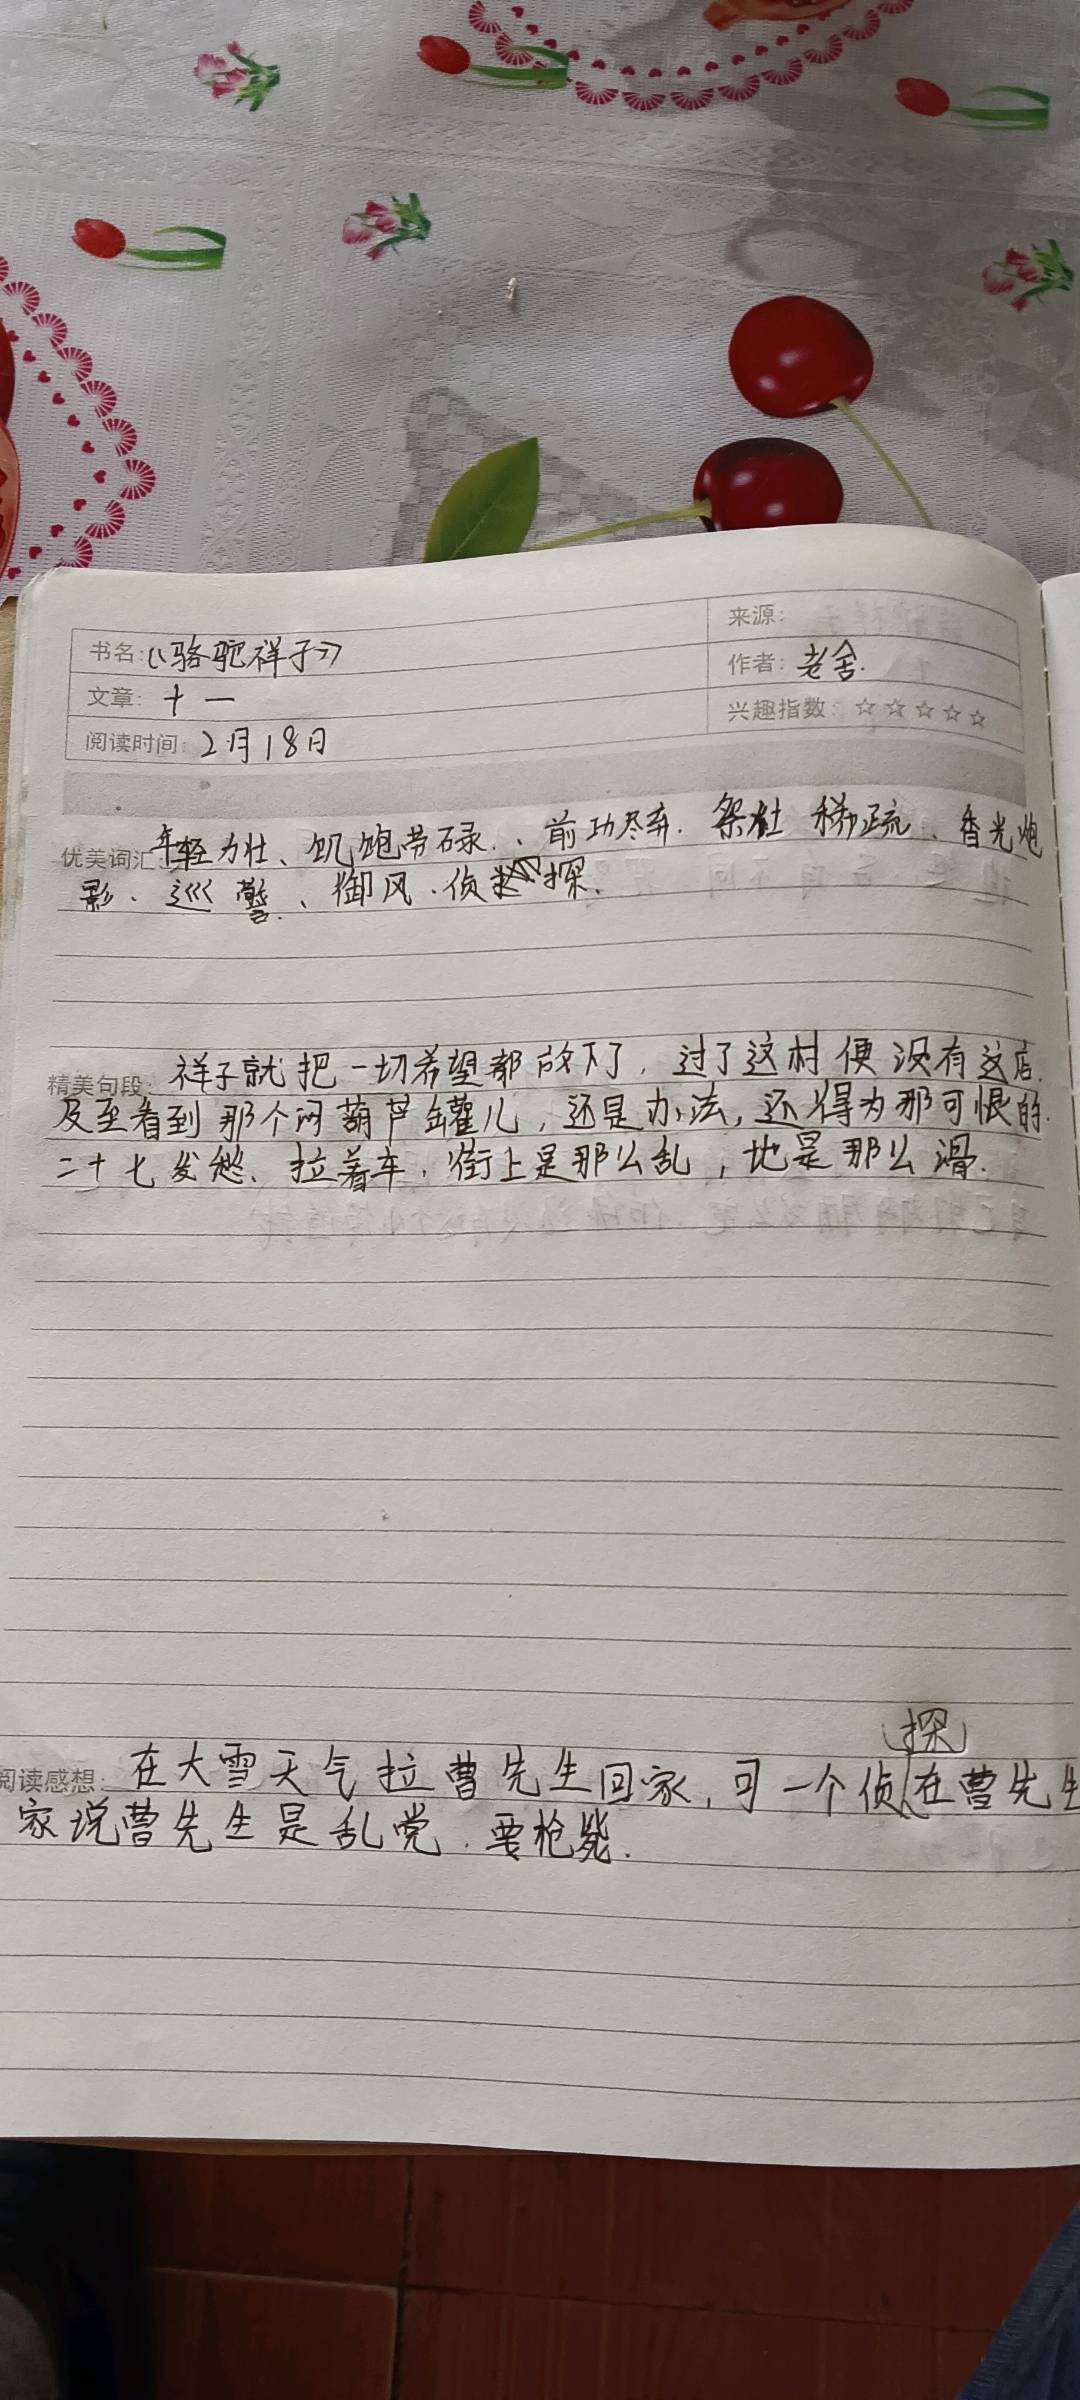 书名:《骆驼祥子》
来源:
作者: 老舍.
文章: 十一
兴趣指数: ☆☆☆☆☆
阅读时间: 2月18日
优美词汇: 年轻力壮、饥饱劳碌、、前功尽弃. 稀疏、香光炮
影、巡警、御风、侦探.
精美句段: 祥子就把一切希望都放下了,过了这村便没有这店.
及至看到那个闷葫芦罐儿,还是办法,还得为那可恨的.
二十七发愁、拉着车,街上是那么乱,地是那么滑.
阅读感想: 在大雪天气拉曹先生回家,可一个侦探在曹先生
家说曹先生是乱党.要枪毙.